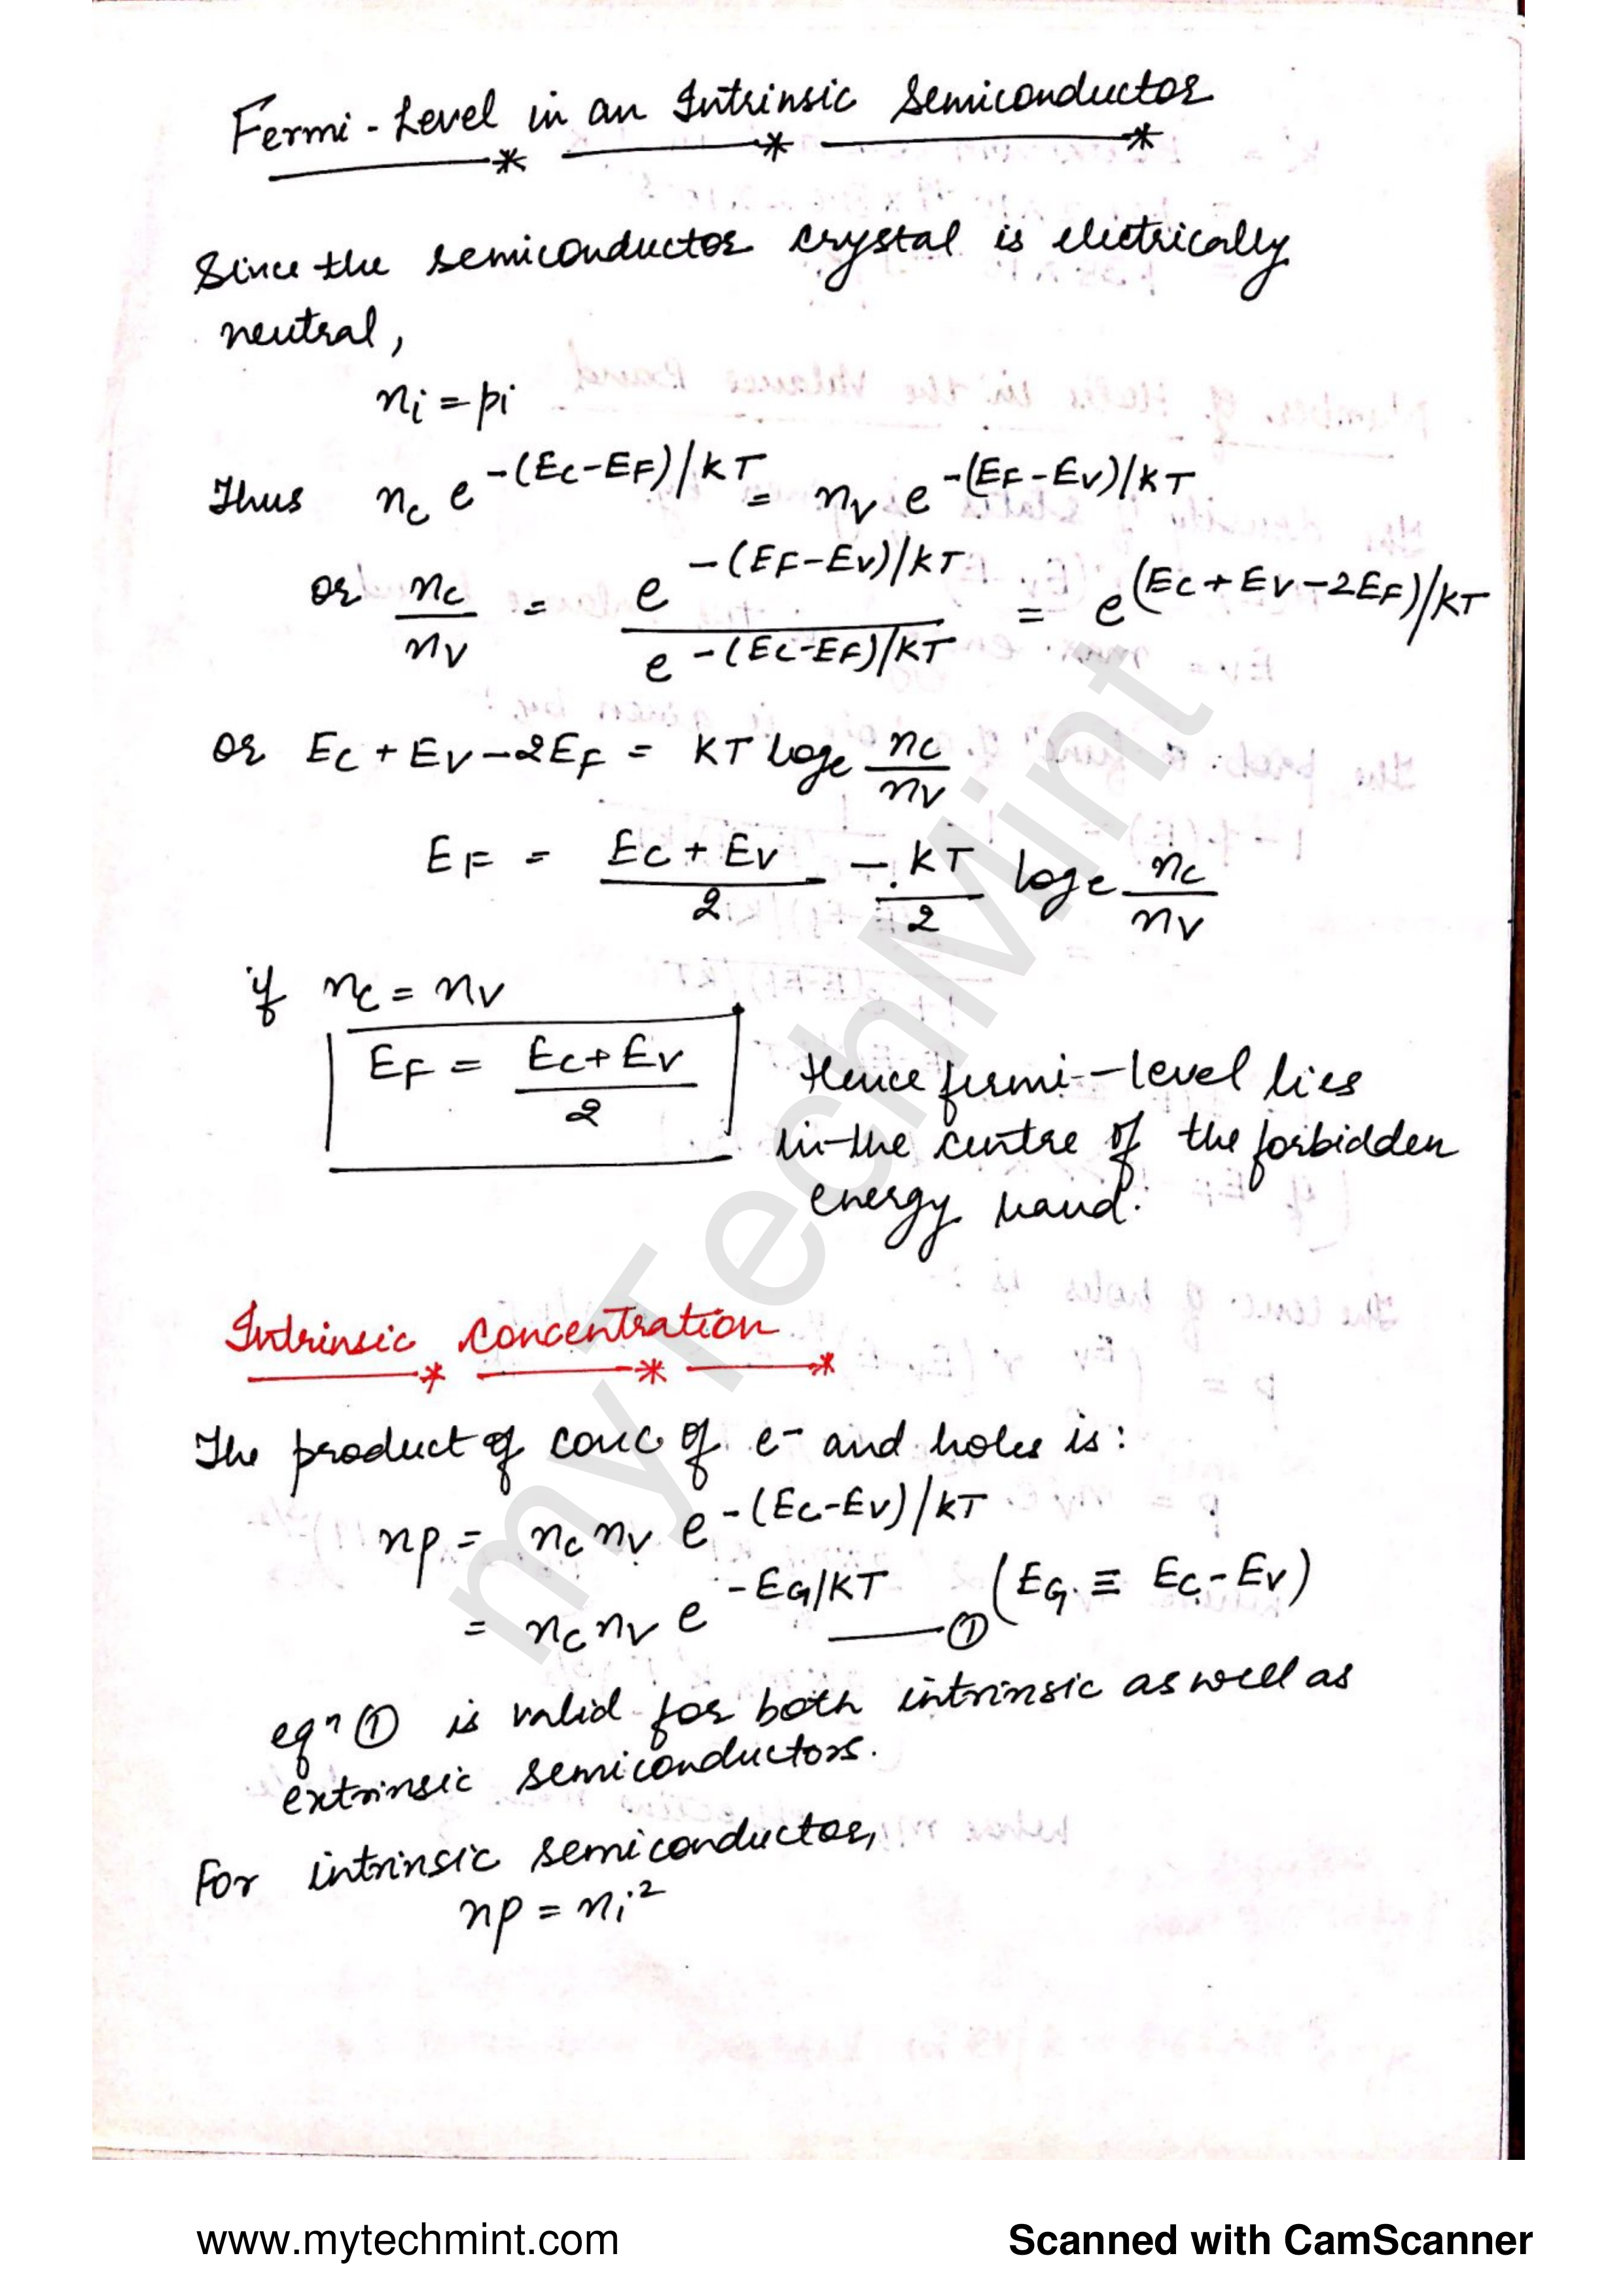 Fermi-Level in an Intrinsic Semiconductor
Since the semiconductor crystal is electrically
neutral,
ni = pi
Thus nc e^-(EC-EF)/KT = nv e^-(EF-EV)/KT
or nc/nv = e^-(EF-EV)/KT / e^-(EC-EF)/KT = e^(EC+EV-2EF)/KT
or EC + EV - 2EF = KT loge nc/nv
EF = EC + EV/2 - KT/2 loge nc/nv
if nc = nv
EF = EC+EV/2
Hence fermi-level lies
in the centre of the forbidden
energy band.
Intrinsic Concentration
The product of conc of e- and holes is:
np = nc nv e^-(EC-EV)/KT
= nc nv e^-EG/KT ——① (EG ≡ EC-EV)
eqn ① is valid for both intrinsic as well as
extrinsic semiconductors.
For intrinsic semiconductor,
np = ni²
myTechMint
www.mytechmint.com
Scanned with CamScanner